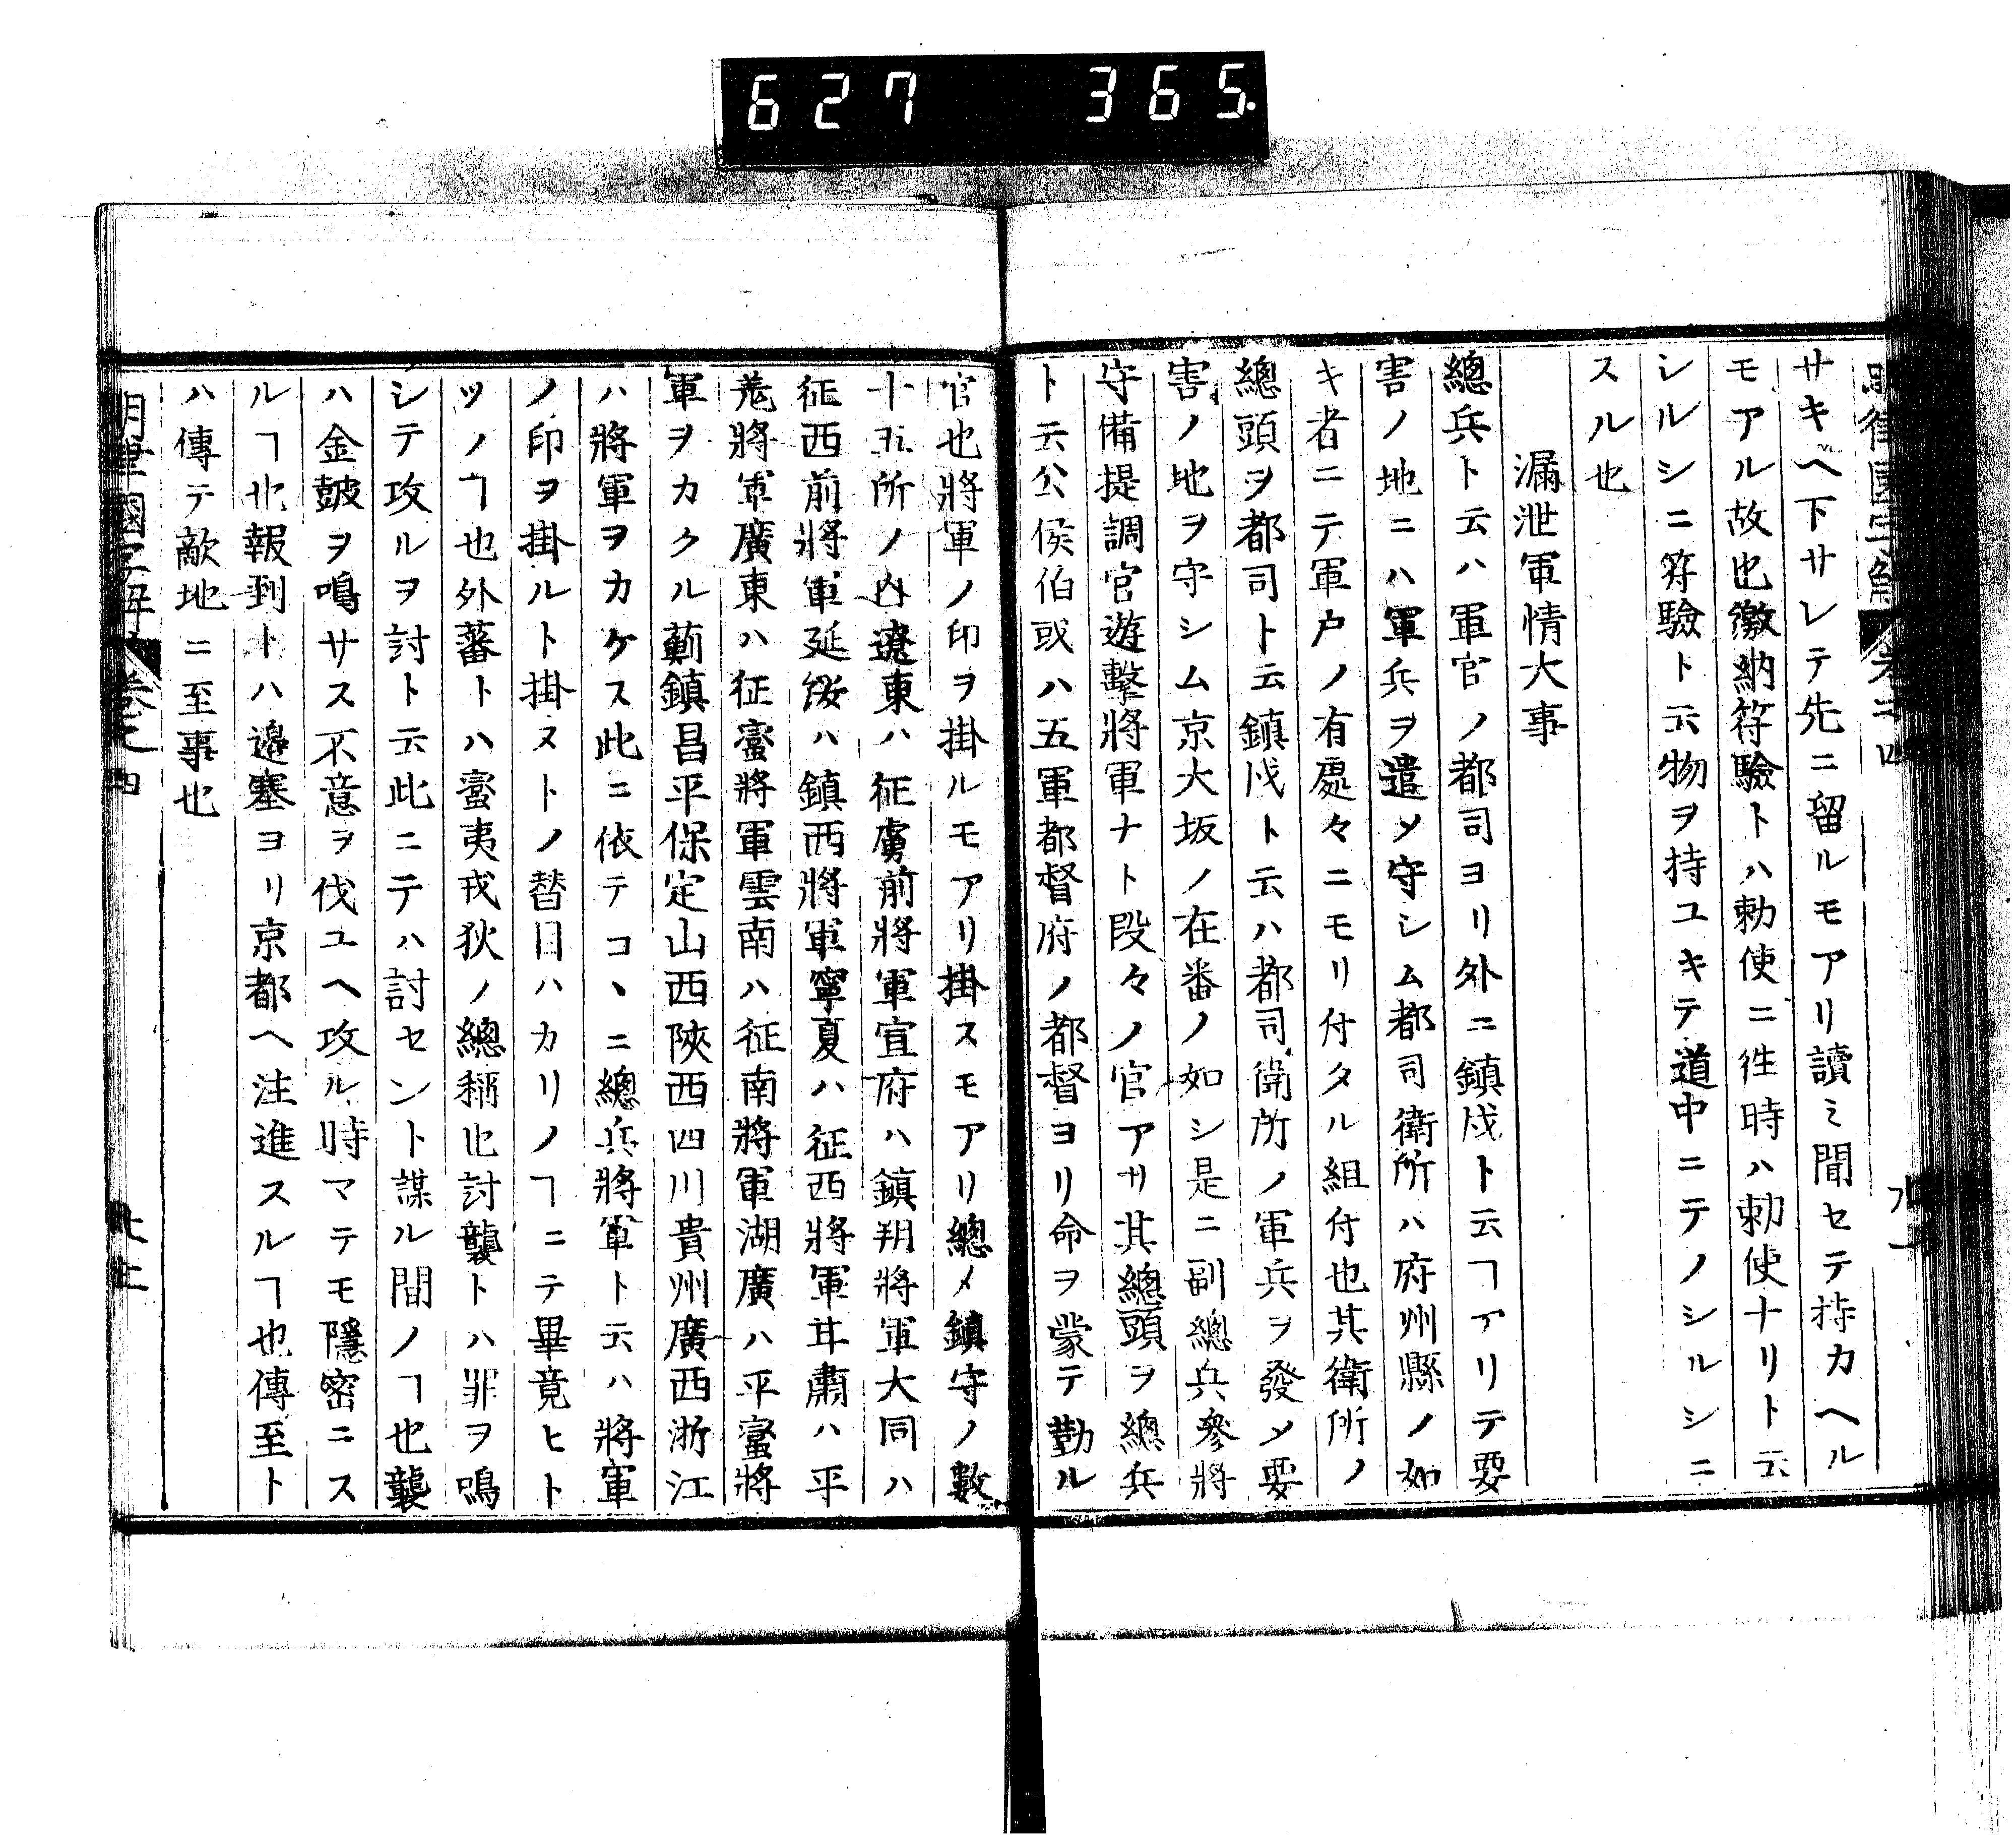 627 365.
サキヘ下サレテ先ニ留ルモアリ讀ミ聞セテ持カヘル
モアル故也繳納符驗トハ勅使ニ徃時ハ勅使ナリト云
シルシニ符驗ト云物ヲ持ユキテ道中ニテノシルシニ
スル也
漏泄軍情大事
總兵ト云ハ軍官ノ都司ヨリ外ニ鎮戍ト云ヿアリテ要
害ノ地ニハ軍兵ヲ遣メ守シム都司衛所ハ府州縣ノ如
キ者ニテ軍戸ノ有處々ニモリ付タル組付也其衛所ノ
總頭ヲ都司ト云鎮戍ト云ハ都司衛所ノ軍兵ヲ發メ要
害ノ地ヲ守シム京大坂ノ在番ノ如シ是ニ副總兵參將
守備提調官遊擊將軍ナト段々ノ官アリ其總頭ヲ總兵
ト云公侯伯或ハ五軍都督府ノ都督ヨリ命ヲ蒙テ勤ル
官也將軍ノ印ヲ掛ルモアリ掛スモアリ總メ鎮守ノ數
十五所ノ内遼東ハ征虜前將軍宣府ハ鎮朔將軍大同ハ
征西前將軍延綏ハ鎮西將軍寧夏ハ征西將軍甘肅ハ平
羗將軍廣東ハ征蠻將軍雲南ハ征南將軍湖廣ハ平蠻將
軍ヲカクル薊鎮昌平保定山西陝西四川貴州廣西浙江
ハ將軍ヲカケス此ニ依テコヽニ總兵將軍ト云ハ將軍
ノ印ヲ掛ルト掛ヌトノ替目ハカリノヿニテ畢竟ヒト
ツノヿ也外蕃トハ蠻夷戎狄ノ總稱也討襲トハ罪ヲ鳴
シテ攻ルヲ討ト云此ニテハ討セント謀ル間ノヿ也襲
ハ金皷ヲ鳴サス不意ヲ伐ユヘ攻ル時マテモ隱密ニス
ルヿ也報到トハ邉塞ヨリ京都ヘ注進スルヿ也傳至ト
ハ傳テ敵地ニ至事也